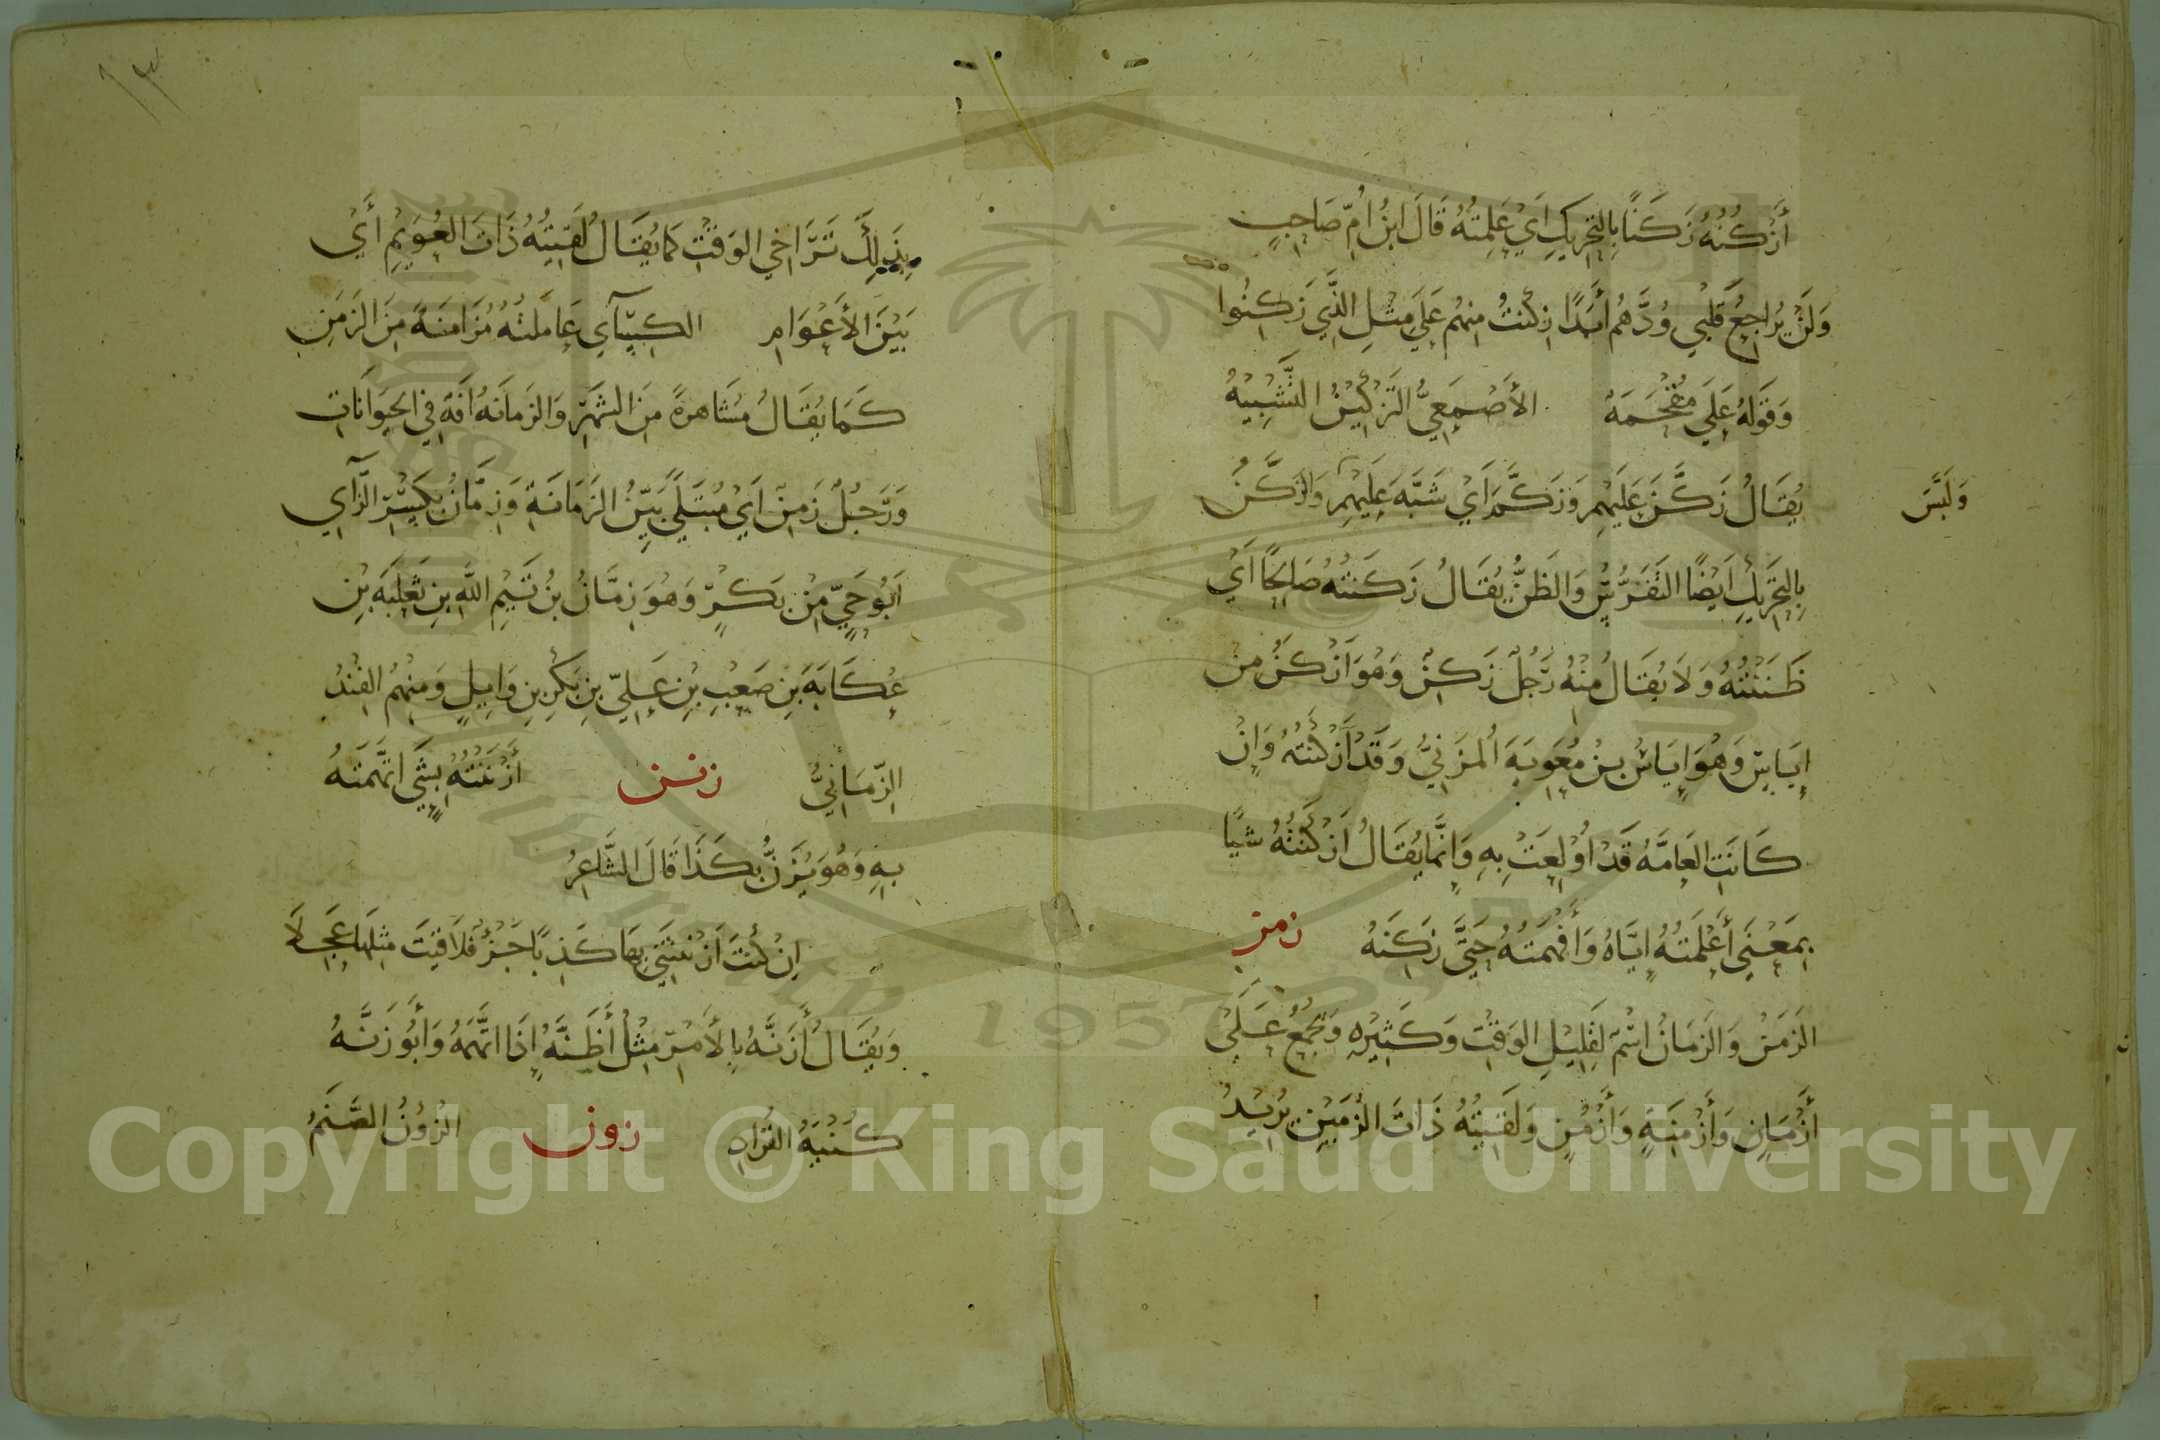 أَزْكُنُهُ زَكَنًا بِالتحرِيكِ اَيْ عَلِمتُهُ قَالَ ابنُ اُمِّ صَاحِبٍ
وَلَنْ يُرَاجِعَ قَلْبِي وُدَّهُم أَبَدًا زكنتُ مِنهُم عَلَى مِثلِ الَّذِي زَكِنُوا
وَقَولهُ عَلَى مُقْحَمَهُ الأَصْمَعِيُّ التَزْكِيْنُ التَّشْبِيْهُ
يُقَالُ زَكَّنَ عَلَيهِم وَزَكَّمَ اَيْ شَبَّهَ عَلَيهِم وَالزَكَنُ
وَلَبَّسَ
بِالتحَرِيكِ اَيْضًا التَفَرُّسُ وَالظَنُّ يُقَالُ زَكَنتُهُ صَالِحًا اَيْ
ظَنَنْتُهُ وَلَا يُقَالُ مِنْهُ رَجُلٌ زَكِنٌ وَهُوَ اَزْكَنُ مِنْ
إِيَاسٍ وَهُوَ اِيَاسُ بنُ مُعوِيَةَ المُزَنِيُّ وَقَدْ أَزْكَنْتُهُ وَاِنْ
كَانَتِ العَامَّةُ قَدْ اُوْلِعَتْ بِهِ وَاِنَّمَا يُقَالُ اَزْكَنْتُهُ شيًا
بِمَعْنَى أَعْلَمتُهُ اِيَّاهُ وَأَفْهَمْتُهُ حَتَّى زَكِنَهُ زمن
الزَمَنُ وَالزَمَانُ اسْمٌ لقَلِيْلِ الوَقْتِ وَكَثِيْرِهِ وَيُجْمَعُ عَلَى
أَزْمَانٍ وَأَزْمِنَةٍ وَأَزْمُنٍ وَلَقَيتُهُ ذَاتَ الزُمَيْنِ يُرِيْدُ
بِذَلِكَ تَرَاخِي الوَقْتِ كَمَا يُقَالُ لَقِيتُهُ ذَاتَ العُوَيْمِ أَيْ
بَيْنَ الأَعْوَامِ الكِسَآي عَامَلتُهُ مُزَامَنَةً مِنَ الزَمَنِ
كَمَا يُقَالُ مُشَاهرةً مِنَ الشَهْرِ وَالزمانَهُ اَفَةٌ فِي الحيَوَانَاتِ
وَرَجُلٌ زَمِنٌ اَيْ مُبْتَلًى بَيِّنُ الزَمَانَةِ وَزِمَّانُ بكَسْرِ الزَّاي
اَبُو حَيٍّ مِنْ بَكْرٍ وَهُوَ زِمَّانُ بنُ تَيْمِ اللهِ بنِ ثَعْلَبَةَ بْنِ
عُكَابَةَ بَنِ صَعْبِ بْنِ عَلِيِّ بنِ بَكْرِ بنِ وَايِلٍ وَمِنهُمُ الفِنْدُ
الزِّمَانِيُّ زنن أَزْنَنْتُهُ بِشَيٍ اتّهَمتهُ
بِهِ وَهُوَ يُزَنُّ بِكَذَا قَالَ الشَّاعِرُ
اِنْ كُنْتَ اَزْنَنْتَنِي بِهَا كَذِبًا جَزْءُ فَلَاقَيتَ مثِلَهَا عَجِلَا
وَيُقَالُ أَزَنَّهُ بِالأَمْرِ مِثْلُ أَظَنَّهُ اِذَا اتَّهَمَهُ وَأَبُو زَنَّهُ
كُنْيَةُ القُرَادِ زون الزُوْنُ الصَّنَمُ
Copyright © King Saud University
1957